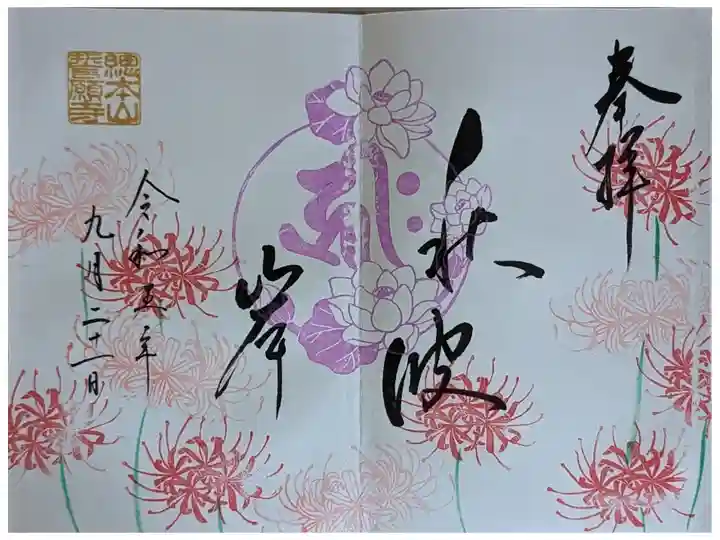 奉拝
秋彼岸
令和五年
九月二十一日
總本山
誓願寺